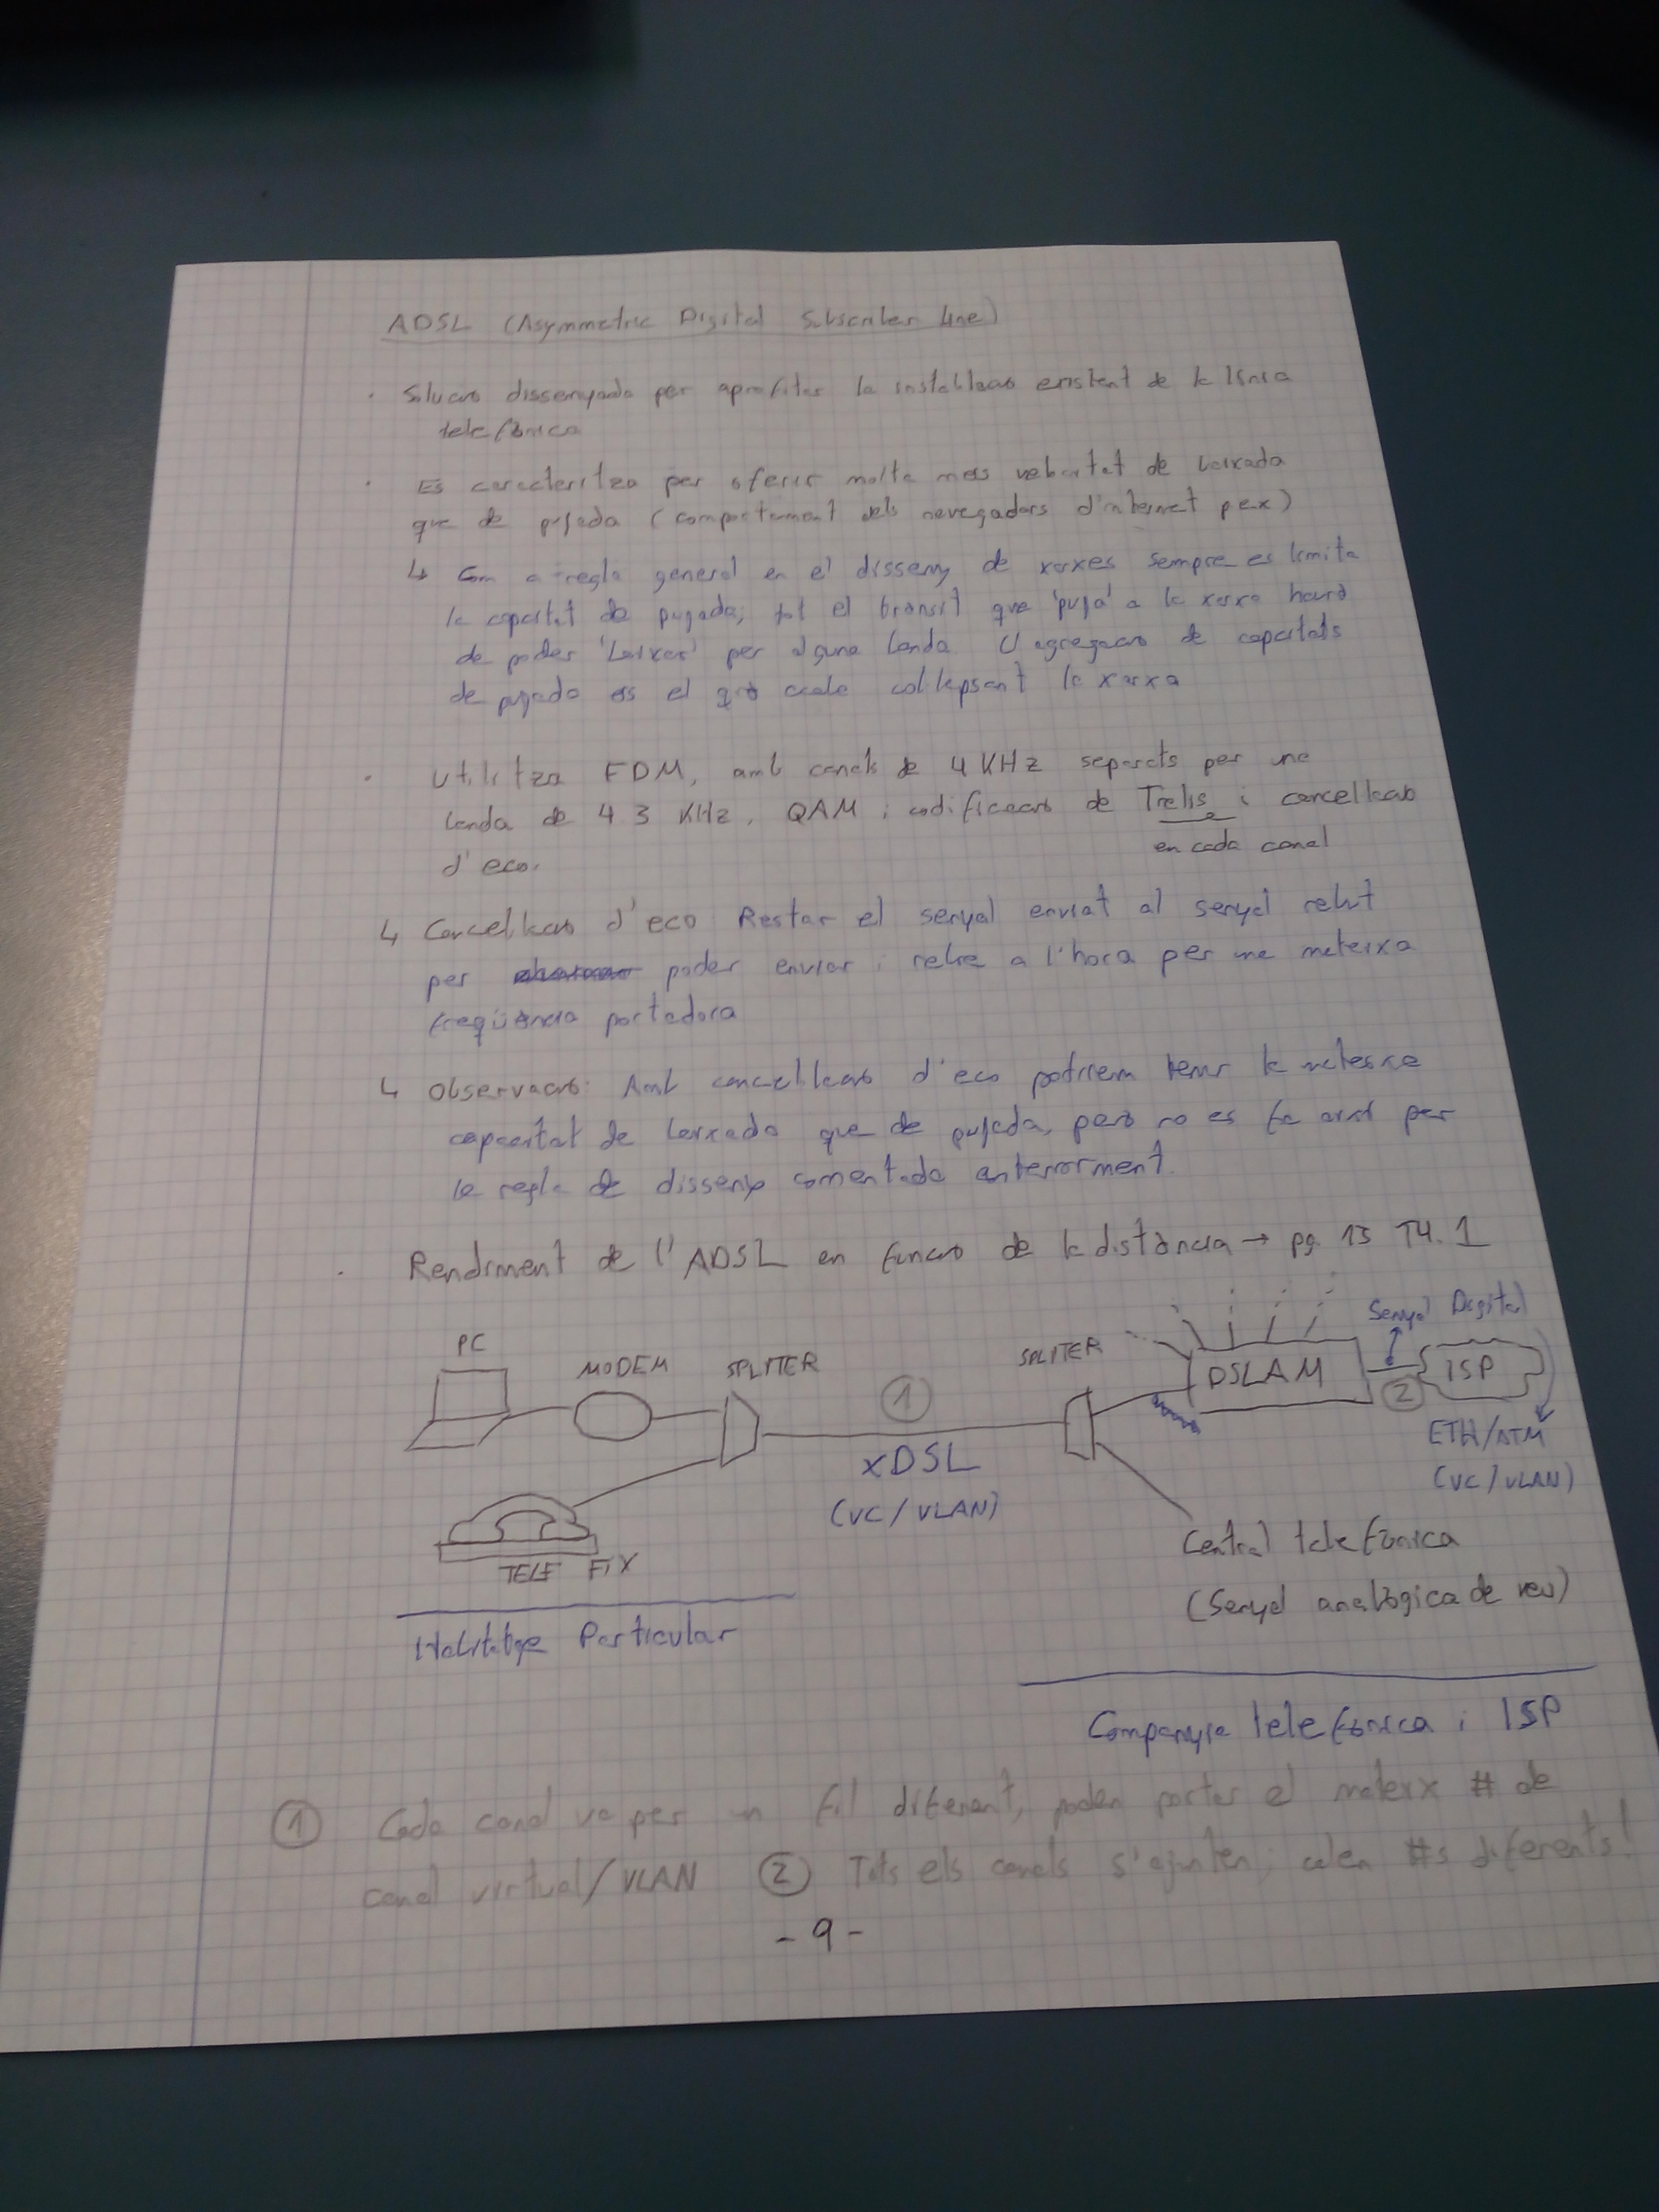 ADSL (Asymmetric Digital Subscriber Line)
· Solució dissenyada per aprofitar la instal·lació existent de la línia
telefònica
· Es caracteritza per oferir molta més velocitat de baixada
que de pujada (comportament dels navegadors d'internet p.ex)
↳ Com a regla general en el disseny de xarxes sempre es limita
la capacitat de pujada; tot el trànsit que 'puja' a la xarxa haurà
de poder 'baixar' per alguna banda. L'agregació de capacitats
de pujada és el que acaba col·lapsant la xarxa
· Utilitza FDM, amb canals de 4 KHz separats per una
banda de 4 3 KHz, QAM i codificació de Trelis i cancel·lació
en cada canal
d'eco.
↳ Cancel·lació d'eco Restar el senyal enviat al senyal rebut
per poder enviar i rebre a l'hora per una mateixa
freqüència portadora
↳ Observació: Amb cancel·lació d'eco podríem tenir la mateixa
capacitat de baixada que de pujada, però no es fa així per
la regla de disseny comentada anteriorment.
· Rendiment de l'ADSL en funció de la distància → pg. 15 T4.1
Senyal Digital
PC MODEM SPLITER SPLITER DSLAM ISP
1 2
xDSL
(VC/VLAN)
ETH/ATM
(VC/VLAN)
TELF FIX
Central telefònica
(Senyal analògica de veu)
Habitatge Particular
Companyia telefònica i ISP
1 Cada canal va per un fil diferent, poden portar el mateix # de
canal virtual/VLAN 2 Tots els canals s'ajunten; calen #s diferents!
- 9 -